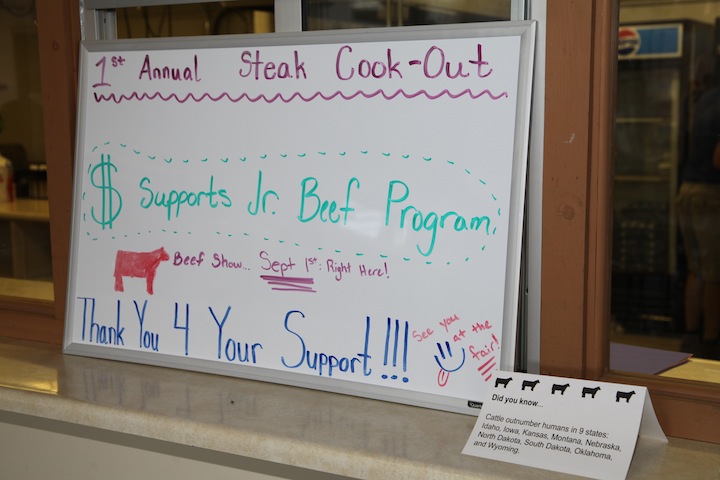 1st Annual Steak Cook-Out
$ Supports Jr. Beef Program
Beef Show... Sept 1st: Right Here!
Thank You 4 Your Support!!!
See you at the fair!
Did you know...
Cattle outnumber humans in 9 states:
Idaho, Iowa, Kansas, Montana, Nebraska,
North Dakota, South Dakota, Oklahoma,
and Wyoming.
pepsi